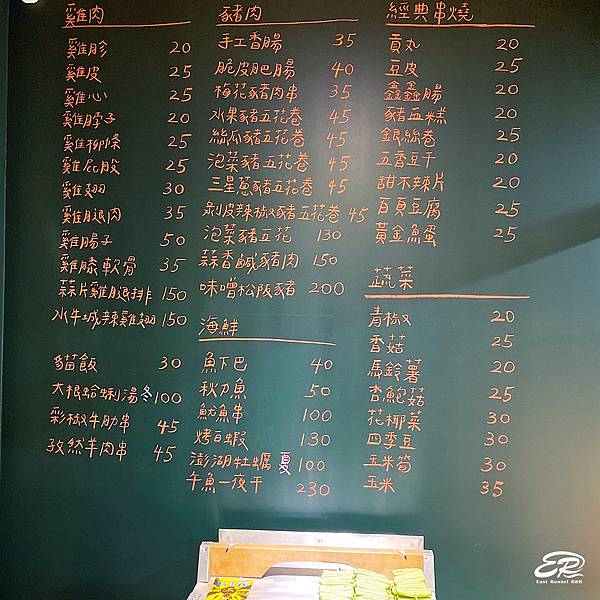 雞肉
雞胗 20
雞皮 25
雞心 25
雞脖子 20
雞柳條 25
雞屁股 25
雞翅 30
雞腿肉 35
雞腸子 50
雞膝軟骨 35
蒜片雞腿排 150
水牛城辣雞翅 150
貓飯 30
大根蛤蜊湯 冬 100
彩椒牛肋串 45
孜然羊肉串 45
豬肉
手工香腸 35
脆皮肥腸 40
梅花豬肉串 35
水果豬五花卷 45
絲瓜豬五花卷 45
泡菜豬五花卷 45
三星蔥豬五花卷 45
剝皮辣椒豬五花卷 45
泡菜豬五花 130
蒜香鹹豬肉 150
味噌松阪豬 200
海鮮
魚下巴 40
秋刀魚 50
魷魚串 100
烤白蝦 130
澎湖牡蠣 夏 100
午魚一夜干 230
經典串燒
貢丸 20
豆皮 25
鑫鑫腸 20
豬血糕 20
銀絲卷 25
五香豆干 20
甜不辣片 20
百頁豆腐 25
黃金魚蛋 25
蔬菜
青椒 20
香菇 25
馬鈴薯 20
杏鮑菇 25
花椰菜 30
四季豆 30
玉米筍 30
玉米 35
ER
East Runner B&B